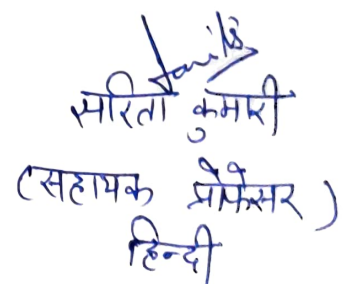 सरिता कुमारी
(सहायक प्रोफेसर)
हिन्दी